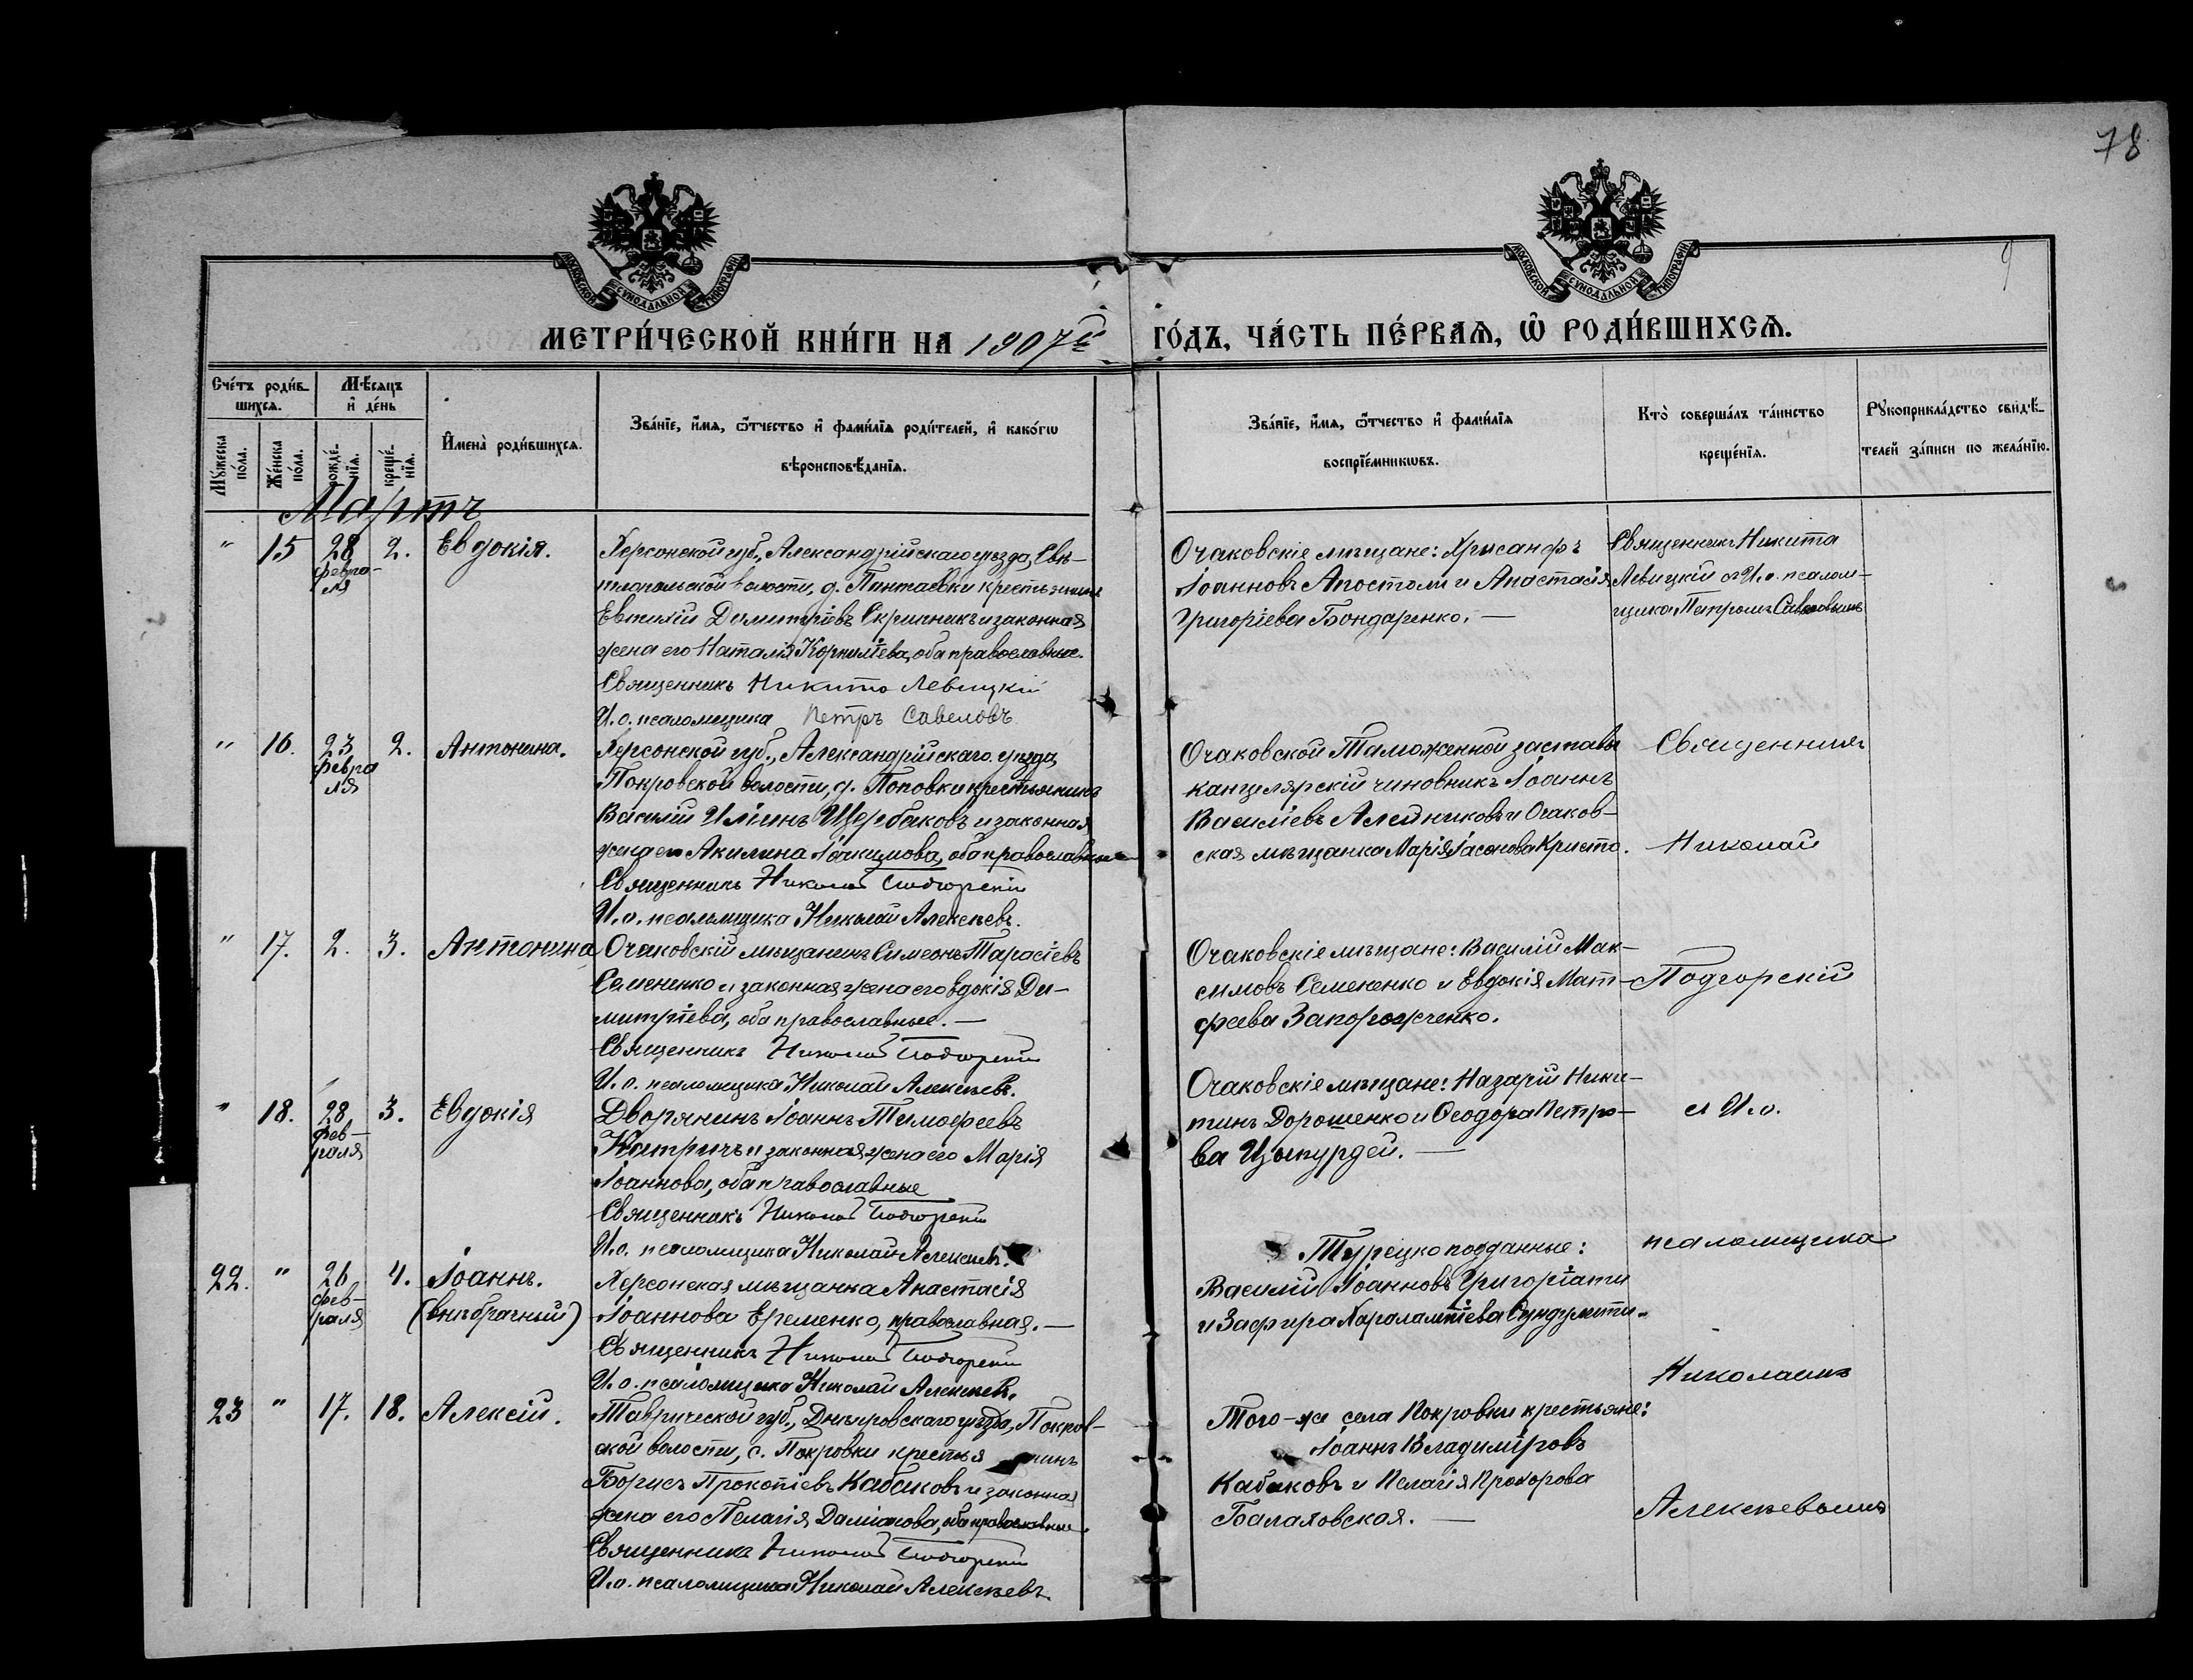 78
9
МОСКОВСКОЙ СУНОДАЛЬНОЙ ТИПОГРАФІИ
МОСКОВСКОЙ СУНОДАЛЬНОЙ ТИПОГРАФІИ
МЕТРИ́ЧЕСКОЙ КНИ́ГИ НА 1907й ГО́ДЪ, ЧА́СТЬ ПЕ́РВАѦ, Ѡ РОДИ́ВШИХСѦ.
Сче́тъ роди́в-
шихсѧ.
Мѣ́сѧцъ
и҆ де́нь
Мꙋ́жеска по́ла.
Же́нска по́ла.
рожде́-нїѧ.
креще́-нїѧ.
И҆мена̀ роди́вшихсѧ.
Зва́нїе, и҆́мѧ, ѻ҆́тчество и҆ фами́лїѧ роди́телей, и҆ како́гѡ
вѣроисповѣ́данїѧ.
Зва́нїе, и҆́мѧ, ѻ҆́тчество и҆ фами́лїѧ
воспрїе́мникѡвъ.
Кто̀ соверша́лъ та́инство
креще́нїѧ.
Рꙋкоприкла́дство свидѣ́-
телей за́писи по жела́нїю.
Мартъ
" 15 28 февра-ля 2. Евдокія.
Херсонской губ., Александрійскаго уѣзда, Свѣ-
тлопольской волости, д. Пантаевки крестьянинъ
Евтихій Димитріевъ Скрипникъ и законная
жена его Наталія Корниліева, оба православные.
Священникъ Никита Левицкій
И. о. псаломщика Петръ Савеловъ
Очаковскіе мѣщане: Хрисанфъ
Іоанновъ Апостоли и Анастасія
Григоріева Бондаренко. —
Священникъ Никита
Левицкій съ И. о. псалом-
щика Петромъ Савеловымъ
" 16. 23 февра ля 2. Антонина.
Херсонской губ., Александрійскаго уѣзда,
Покровской волости, д. Поповки крестьянинъ
Василій Иліинъ Щербаковъ и законная
жена его Акилина Іоакимова, оба православные
Священникъ Николай Подгорскій
И. о. псаломщика Николай Алексѣевъ.
Очаковской Таможенной заставы
канцелярскій чиновникъ Іоаннъ
Василіевъ Алейниковъ и Очаков-
ская мѣщанка Марія Іасонова Кристо.
Священникъ
Николай
" 17. 2. 3. Антонина
Очаковскій мѣщанинъ Симеонъ Тарасіевъ
Семененко и законная жена его Евдокія Ди-
митріева, оба православные. —
Священникъ Николай Подгорскій
И. о. псаломщика Николай Алексѣевъ.
Очаковскіе мѣщане: Василій Мак-
симовъ Семененко и Евдокія Мат-
феева Запорожченко.
Подгорскій
" 18. 28 фев-раля 3. Евдокія
Дворянинъ Іоаннъ Тимофеевъ
Катричъ и законная жена его Марія
Іоаннова, оба православные
Священникъ Николай Подгорскій
И. о. псаломщика Николай Алексѣевъ.
Очаковскіе мѣщане: Назарій Ники-
тинъ Дорошенко и Ѳеодора Петро-
ва Цыпурдей. —
съ И. о.
псаломщика
22. " 26 фев-раля 4. Іоаннъ.
(внѣбрачный)
Херсонская мѣщанка Анастасія
Іоаннова Еременко, православная. —
Священникъ Николай Подгорскій
И. о. псаломщика Николай Алексѣевъ.
Турецкоподданные:
Василій Іоанновъ Григоріати
и Зафира Харалампіева
Николаемъ
23 " 17. 18. Алексій.
Таврической губ., Днѣпровскаго уѣзда, Покров-
ской волости, с. Покровки крестьянинъ
Борисъ Прокопіевъ Кабаковъ и законная
жена его Пелагія Даміанова, оба православные.
Священникъ Николай Подгорскій
И. о. псаломщика Николай Алексѣевъ.
Того-же села Покровки крестьяне:
Іоаннъ Владиміровъ
Кабаковъ и Пелагія Прохорова
Балаховская. —
Алексѣевымъ